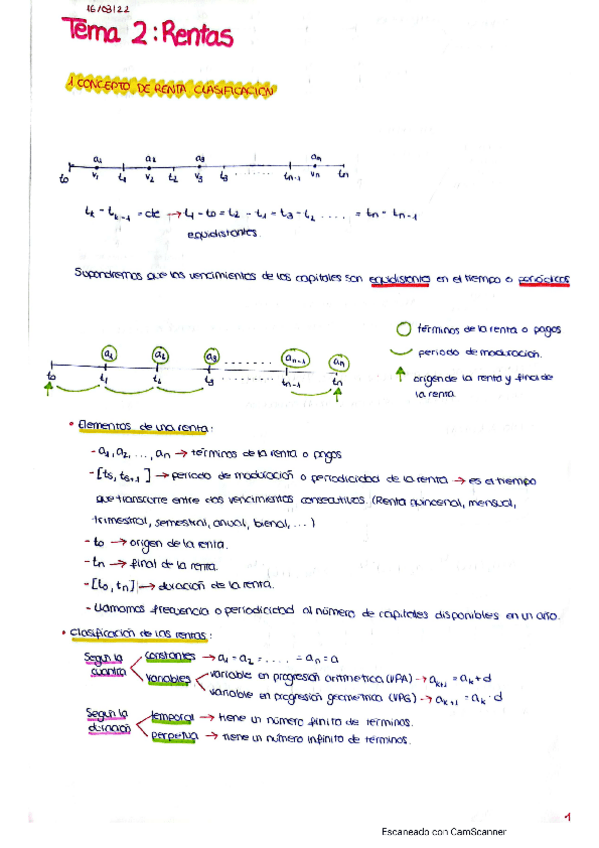 16/03/22
Tema 2: Rentas
1 CONCEPTO DE RENTA. CLASIFICACIÓN
a1 a2 a3 an
t0 v1 t1 v2 t2 v3 t3 ........ tn-1 vn tn
tk - tk-1 = cte → t1 - t0 = t2 - t1 = t3 - t2 ..... = tn - tn-1
equidistantes.
Supondremos que los vencimientos de los capitales son equidistantes en el tiempo o periódicos
a1 a2 a3 ......... an-1 an
t0 t1 t2 t3 ........ tn-1 tn
términos de la renta o pagos
periodo de maduración.
origen de la renta y final de
la renta.
• Elementos de una renta:
- a1, a2, ..., an → términos de la renta o pagos
- [ts, ts+1] → periodo de maduración o periodicidad de la renta → es el tiempo
que transcurre entre dos vencimientos consecutivos. (Renta quincenal, mensual,
trimestral, semestral, anual, bienal, ...)
- t0 → origen de la renta.
- tn → final de la renta.
- [t0, tn] → duración de la renta.
- Llamamos frecuencia o periodicidad al número de capitales disponibles en un año.
• Clasificación de las rentas:
Según la cuantía
constantes → a1 = a2 = .... = an = a
variables
variable en progresión aritmética (VPA) → ak+1 = ak + d
variable en progresión geométrica (VPG) → ak+1 = ak · d
Según la duración
temporal → tiene un número finito de términos.
perpetua → tiene un número infinito de términos.
1
Escaneado con CamScanner